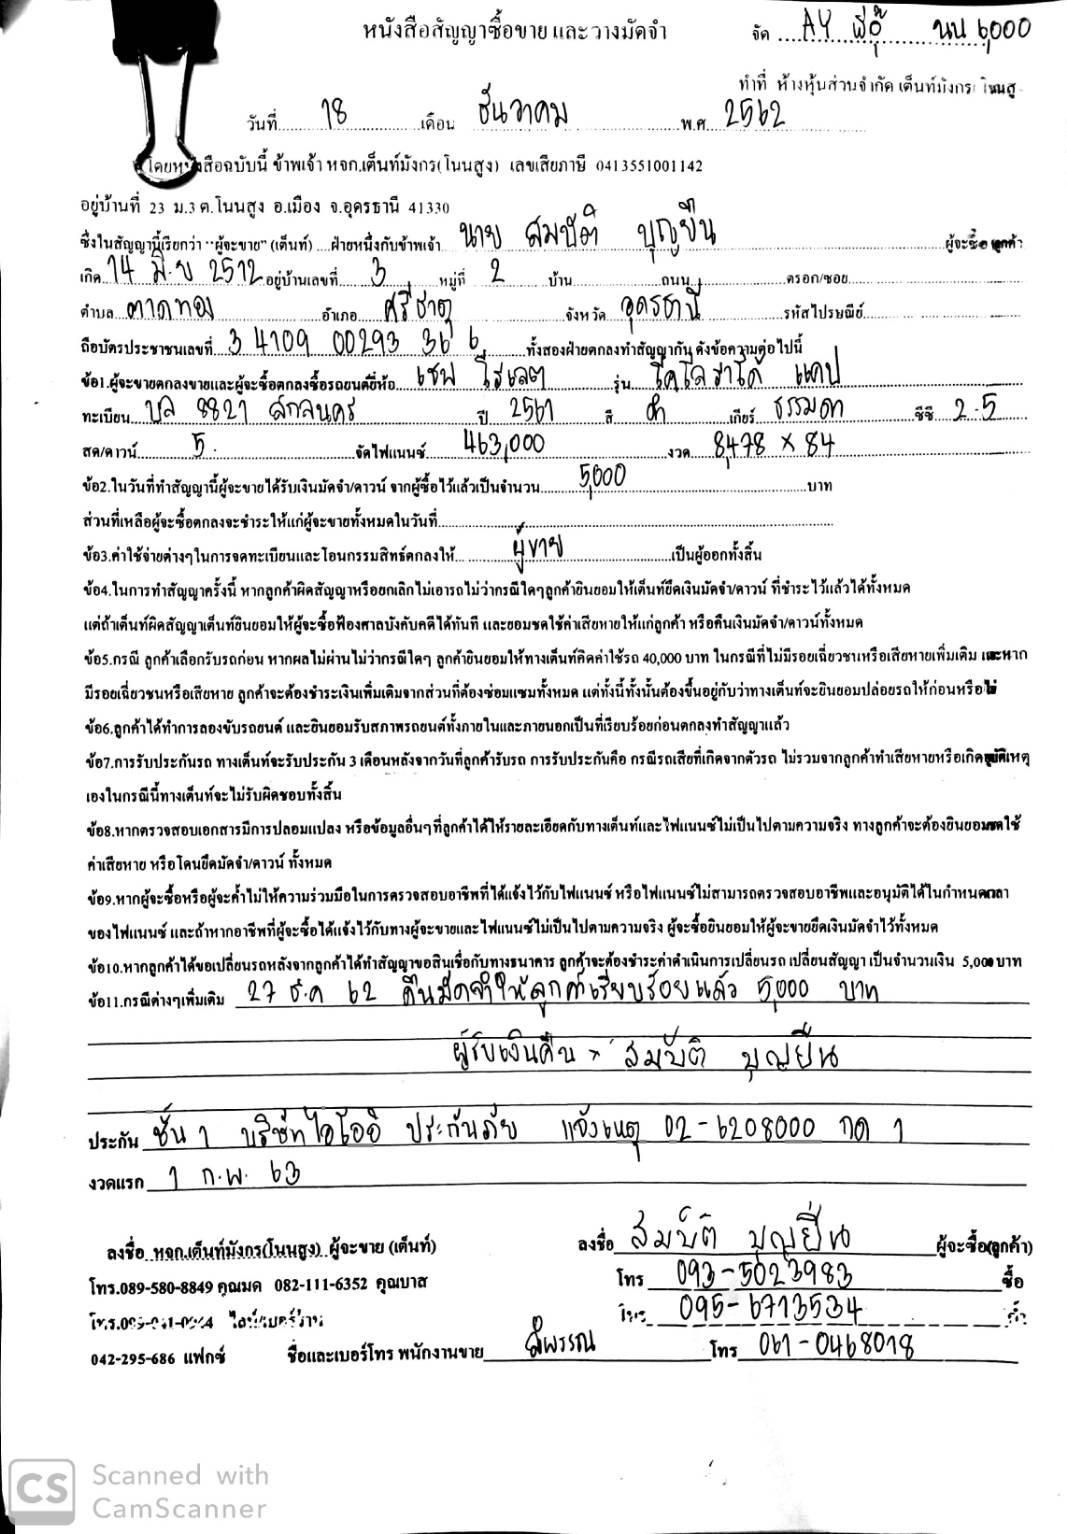 หนังสือสัญญาซื้อขาย และวางมัดจำ
จัด AY พี่อุ๊ นน 6,000
ทำที่ ห้างหุ้นส่วนจำกัด เต็นท์มังกร โนนสู
วันที่ 18 เดือน ธันวาคม พ.ศ. 2562
โดยหนังสือฉบับนี้ ข้าพเจ้า หจก.เต็นท์มังกร(โนนสูง) เลขเสียภาษี 0413551001142
อยู่บ้านที่ 23 ม.3 ต.โนนสูง อ.เมือง จ.อุดรธานี 41330
ซึ่งในสัญญานี้เรียกว่า "ผู้จะขาย" (เต็นท์) ฝ่ายหนึ่งกับข้าพเจ้า นาย สมบัติ บุญยืน ผู้จะซื้อ ลูกค้า
เกิด 14 มิ.ย 2512 อยู่บ้านเลขที่ 3 หมู่ที่ 2 บ้าน ถนน ตรอก/ซอย
ตำบล ตาดทอง อำเภอ ศรีธาตุ จังหวัด อุดรธานี รหัสไปรษณีย์
ถือบัตรประชาชนเลขที่ 3 4109 00293 36 6 ทั้งสองฝ่ายตกลงทำสัญญากัน ดังข้อความต่อไปนี้
ข้อ1.ผู้จะขายตกลงขายและผู้จะซื้อตกลงซื้อรถยนต์ยี่ห้อ เชฟโรเลต รุ่น โคโลราโด้ แคป
ทะเบียน บล 8821 สกลนคร ปี 2561 สี ดำ เกียร์ ธรรมดา ซีซี 2.5
สด/ดาวน์ 5. จัดไฟแนนซ์ 463,000 งวด 8,478 x 84
ข้อ2.ในวันที่ทำสัญญานี้ผู้จะขายได้รับเงินมัดจำ/ดาวน์ จากผู้ซื้อไว้แล้วเป็นจำนวน 5,000 บาท
ส่วนที่เหลือผู้จะซื้อตกลงจะชำระให้แก่ผู้จะขายทั้งหมดในวันที่
ข้อ3.ค่าใช้จ่ายต่างๆในการจดทะเบียนและโอนกรรมสิทธิ์ตกลงให้ ผู้ขาย เป็นผู้ออกทั้งสิ้น
ข้อ4.ในการทำสัญญาครั้งนี้ หากลูกค้าผิดสัญญาหรือยกเลิกไม่เอารถไม่ว่ากรณีใดๆลูกค้ายินยอมให้เต็นท์ยึดเงินมัดจำ/ดาวน์ ที่ชำระไว้แล้วได้ทั้งหมด
แต่ถ้าเต็นท์ผิดสัญญาเต็นท์ยินยอมให้ผู้จะซื้อฟ้องศาลบังคับคดีได้ทันที และยอมชดใช้ค่าเสียหายให้แก่ลูกค้า หรือคืนเงินมัดจำ/ดาวน์ทั้งหมด
ข้อ5.กรณี ลูกค้าเลือกรับรถก่อน หากผลไม่ผ่านไม่ว่ากรณีใดๆ ลูกค้ายินยอมให้ทางเต็นท์คิดค่าใช้รถ 40,000 บาท ในกรณีที่ไม่มีรอยเฉี่ยวชนหรือเสียหายเพิ่มเติม และหาก
มีรอยเฉี่ยวชนหรือเสียหาย ลูกค้าจะต้องชำระเงินเพิ่มเติมจากส่วนที่ต้องซ่อมแซมทั้งหมด แต่ทั้งนี้ทั้งนั้นต้องขึ้นอยู่กับว่าทางเต็นท์จะยินยอมปล่อยรถให้ก่อนหรือไม่
ข้อ6.ลูกค้าได้ทำการลองขับรถยนต์ และยินยอมรับสภาพรถยนต์ทั้งภายในและภายนอกเป็นที่เรียบร้อยก่อนตกลงทำสัญญาแล้ว
ข้อ7.การรับประกันรถ ทางเต็นท์จะรับประกัน 3 เดือนหลังจากวันที่ลูกค้ารับรถ การรับประกันคือ กรณีรถเสียที่เกิดจากตัวรถ ไม่รวมจากลูกค้าทำเสียหายหรือเกิดอุบัติเหตุ
เองในกรณีนี้ทางเต็นท์จะไม่รับผิดชอบทั้งสิ้น
ข้อ8.หากตรวจสอบเอกสารมีการปลอมแปลง หรือข้อมูลอื่นๆที่ลูกค้าได้ให้รายละเอียดกับทางเต็นท์และไฟแนนซ์ไม่เป็นไปตามความจริง ทางลูกค้าจะต้องยินยอมชดใช้
ค่าเสียหาย หรือโดนยึดมัดจำ/ดาวน์ ทั้งหมด
ข้อ9.หากผู้จะซื้อหรือผู้จะค้ำไม่ให้ความร่วมมือในการตรวจสอบอาชีพที่ได้แจ้งไว้กับไฟแนนซ์ หรือไฟแนนซ์ไม่สามารถตรวจสอบอาชีพและอนุมัติได้ในกำหนดเวลา
ของไฟแนนซ์ และถ้าหากอาชีพที่ผู้จะซื้อได้แจ้งไว้กับทางผู้จะขายและไฟแนนซ์ไม่เป็นไปตามความจริง ผู้จะซื้อยินยอมให้ผู้จะขายยึดเงินมัดจำไว้ทั้งหมด
ข้อ10.หากลูกค้าได้ขอเปลี่ยนรถหลังจากลูกค้าได้ทำสัญญาขอสินเชื่อกับทางธนาคาร ลูกค้าจะต้องชำระค่าดำเนินการเปลี่ยนรถ เปลี่ยนสัญญา เป็นจำนวนเงิน 5,000 บาท
ข้อ11.กรณีต่างๆเพิ่มเติม 27 ธ.ค 62 คืนมัดจำให้ลูกค้าเรียบร้อยแล้ว 5,000 บาท
ผู้รับเงินคืน x สมบัติ บุญยืน
ประกัน ชั้น 1 บริษัทไอโออิ ประกันภัย แจ้งเหตุ 02-6208000 กด 1
งวดแรก 1 ก.พ. 63
ลงชื่อ หจก.เต็นท์มังกร(โนนสูง) ผู้จะขาย (เต็นท์) ลงชื่อ สมบัติ บุญยืน ผู้จะซื้อ(ลูกค้า)
โทร.089-580-8849 คุณมด 082-111-6352 คุณบาส โทร 093-5023983 ซื้อ
โทร. โทร. 095-6713534 ค้ำ
042-295-686 แฟกซ์ ชื่อและเบอร์โทร พนักงานขาย ลำพรรณ โทร 061-0468018
CS Scanned with
CamScanner